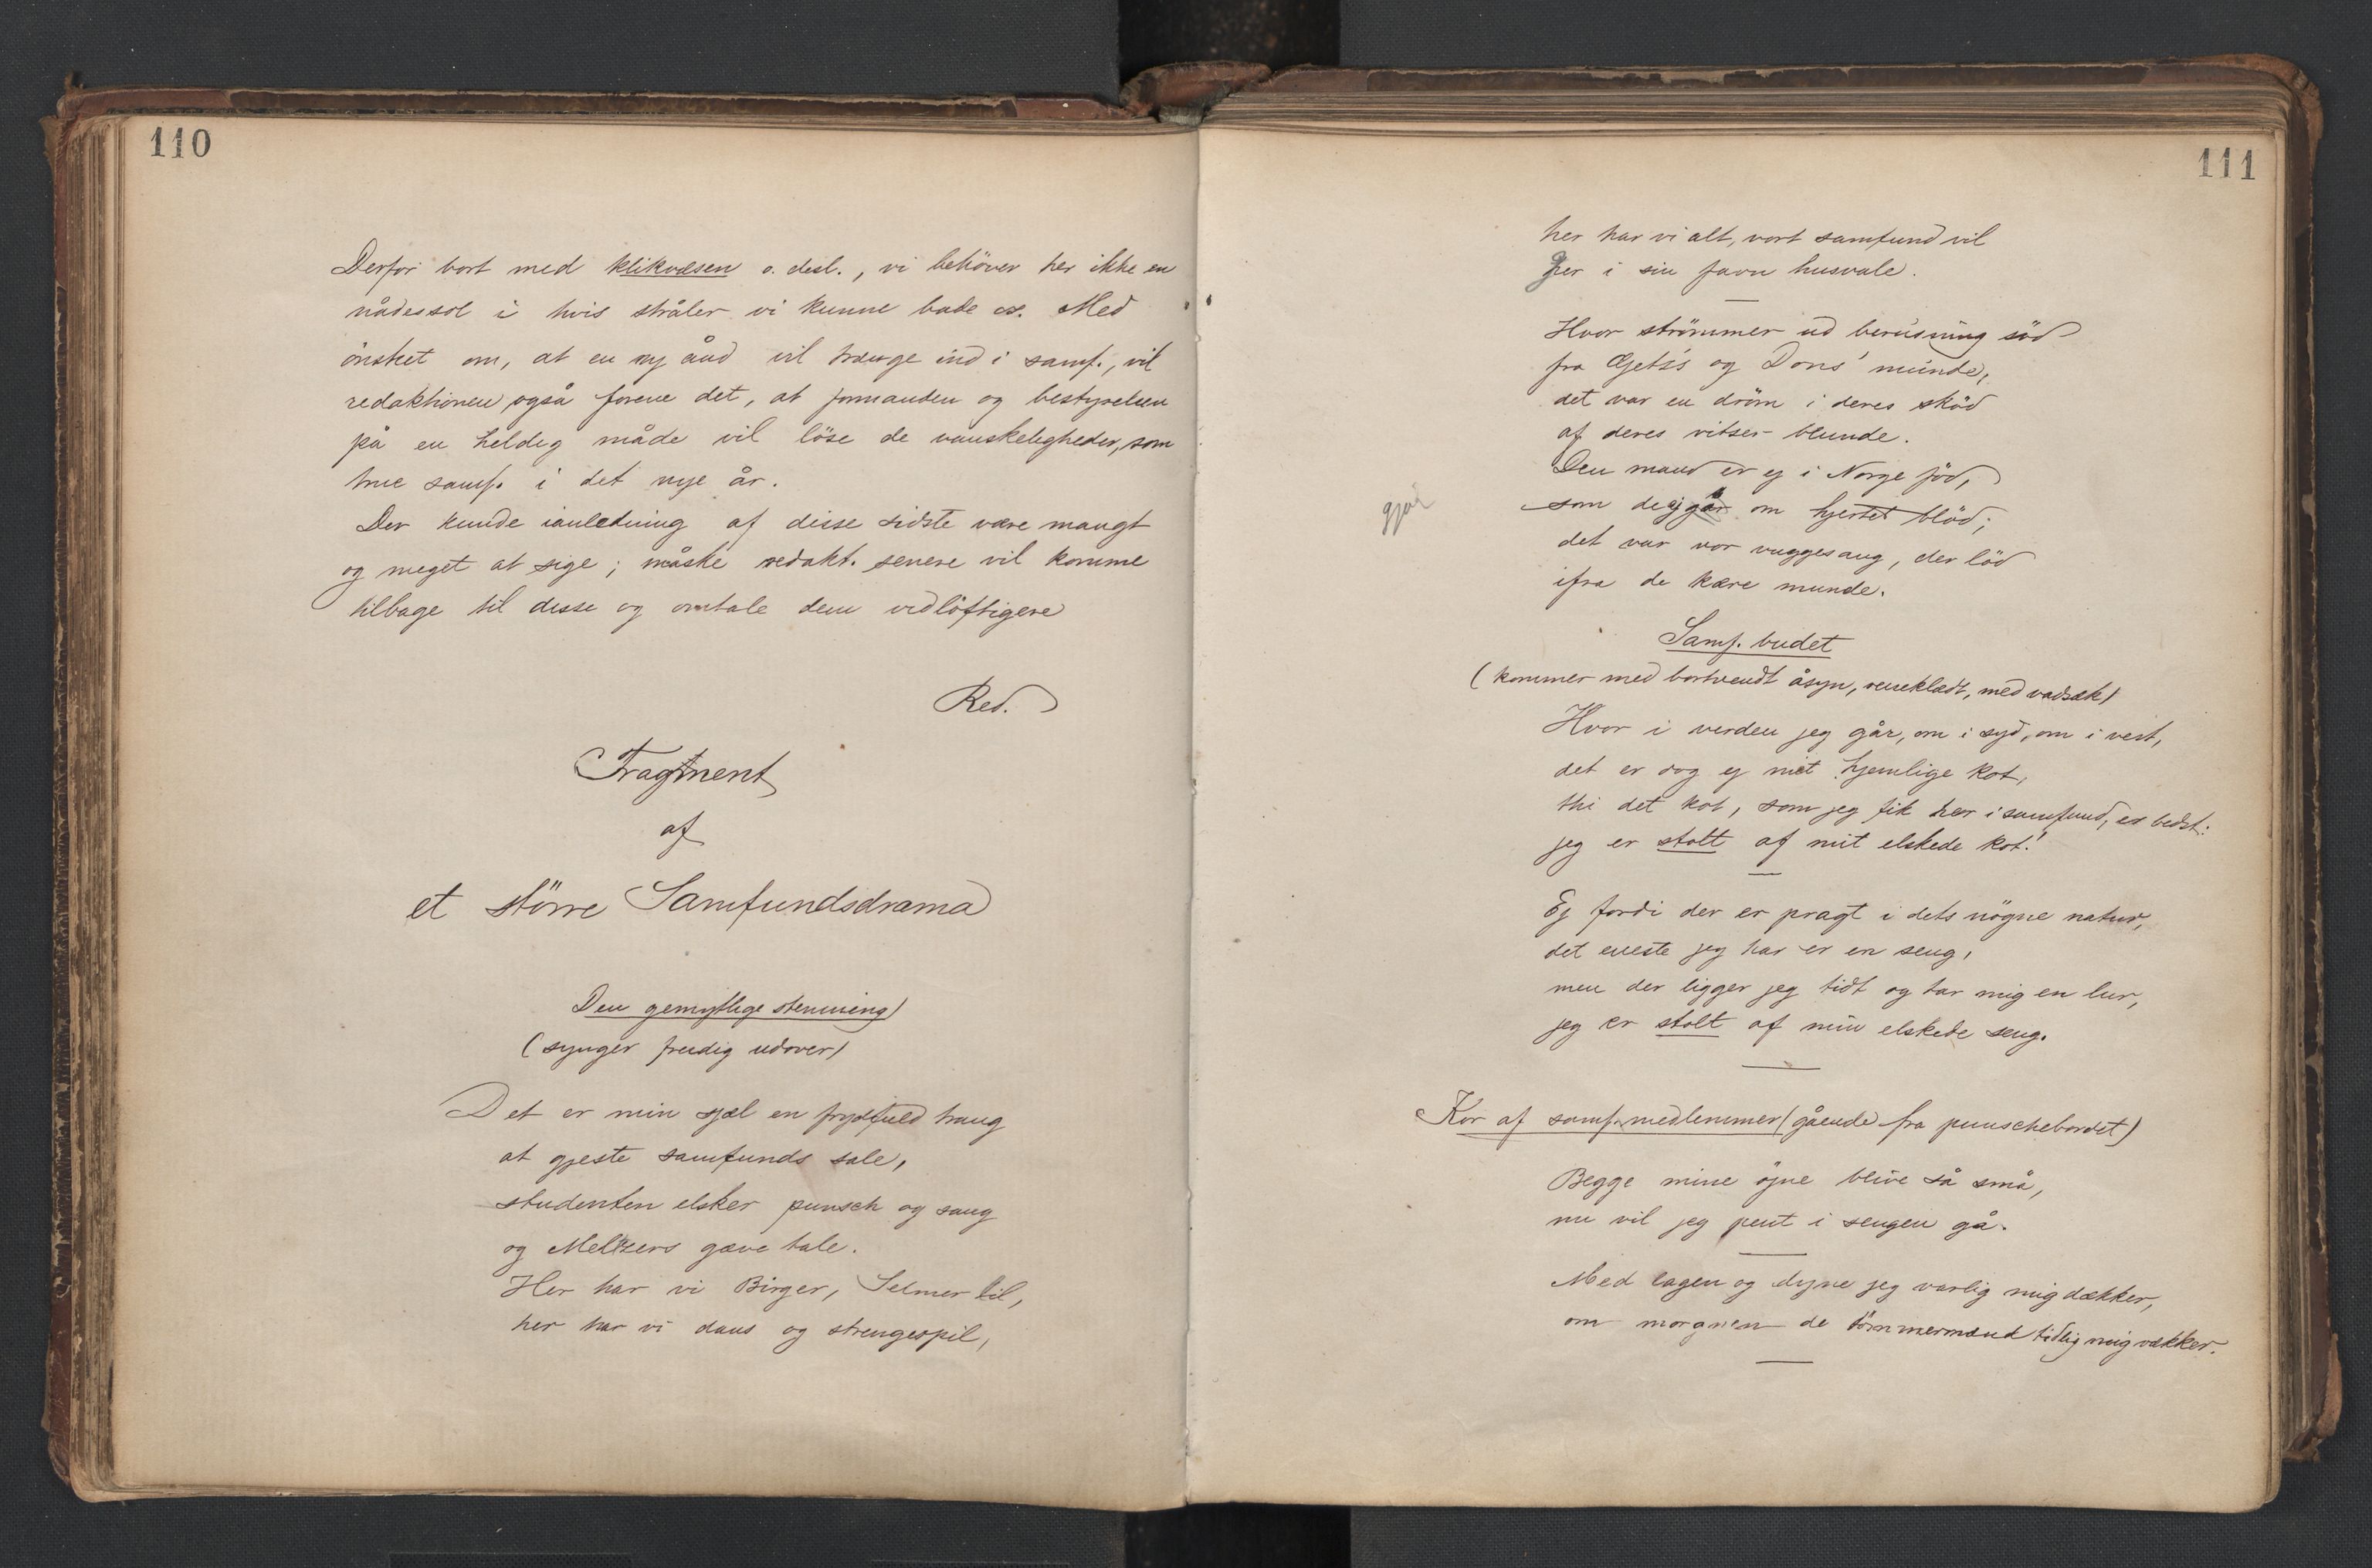 110
Derfor bort med klikvæsen o. desl., vi behöver her ikke en
nådessol i hvis stråler vi kunne bade os. Med
önsket om, at en ny ånd vil trænge ind i samf., vil
redaktionen også forene det, at formanden og bestyrelsen
på en heldig måde vil löse de vanskeligheder, som
true samf. i det nye år.
Der kunde ianledning af disse sidste være mangt
og meget at sige; måske redakt. senere vil komme
tilbage til disse og omtale dem vidlöftigere
Red.
Fragment
af
et större Samfundsdrama
Den gemytlige stemning
(synger freidig udover)
Det er min sjæl en frydefuld trang
at gjeste samfunds sale,
studenten elsker punsch og sang
og Meltzers gæve tale.
Her har vi Birger, Selmer lil,
her har vi dans og strengespil,
111
her har vi alt, vort samfund vil
her i sin favn husvale.
Hvor strömmer ud berusning söd
fra Getz's og Dons' munde,
det var en dröm i deres sköd
af deres vitser blunde.
Den mand er ej i Norge föd,
gjör
som de ej går om hjertet blöd;
det var vor vuggesang, der löd
ifra de kære munde.
Samf. budet
(kommer med bortvendt åsyn, reneklædt, med vadsæk)
Hvor i verden jeg går, om i syd, om i vest,
det er dog ej mit hjemlige kot,
thi det kot, som jeg fik her i samfund, er bedst:
jeg er stolt af mit elskede kot!
Ej fordi der er pragt i dets nögne natur,
det eneste jeg har er en seng,
men der ligger jeg tidt og tar mig en lur,
jeg er stolt af min elskede seng.
Kor af samf.medlemmer (gående fra punschebordet)
Begge mine öjne blive så små,
nu vil jeg pent i sengen gå.
Med lagen og dyne jeg varlig mig dækker,
om morgnen de tömmermænd tidlig mig vækker.